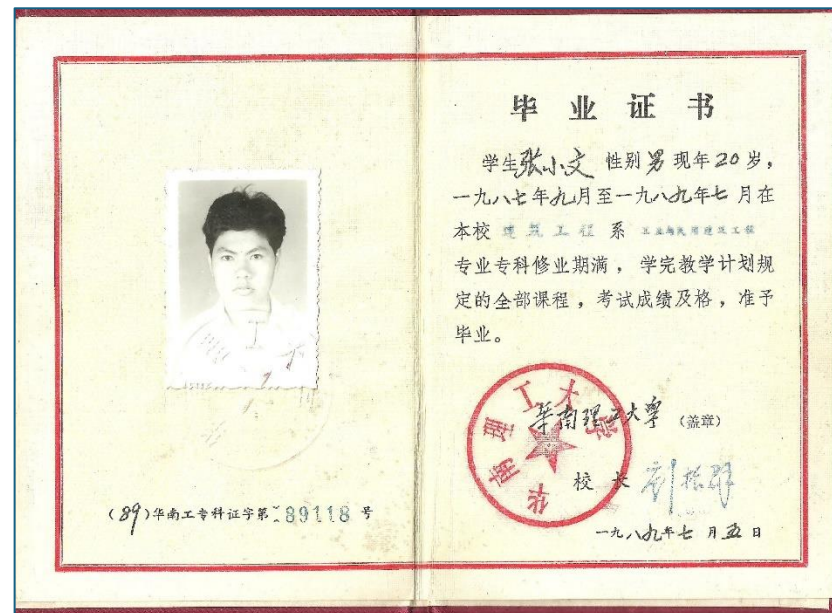 (89)华南工专科证字第89118号
毕业证书
学生张小文性别男现年20岁,
一九八七年九月至一九八九年七月在
本校建筑工程系工业与民用建筑工程
专业专科修业期满,学完教学计划规
定的全部课程,考试成绩及格,准予
毕业。
华南理工大学
华南理工大學(盖章)
校长刘振群
一九八九年七月五日